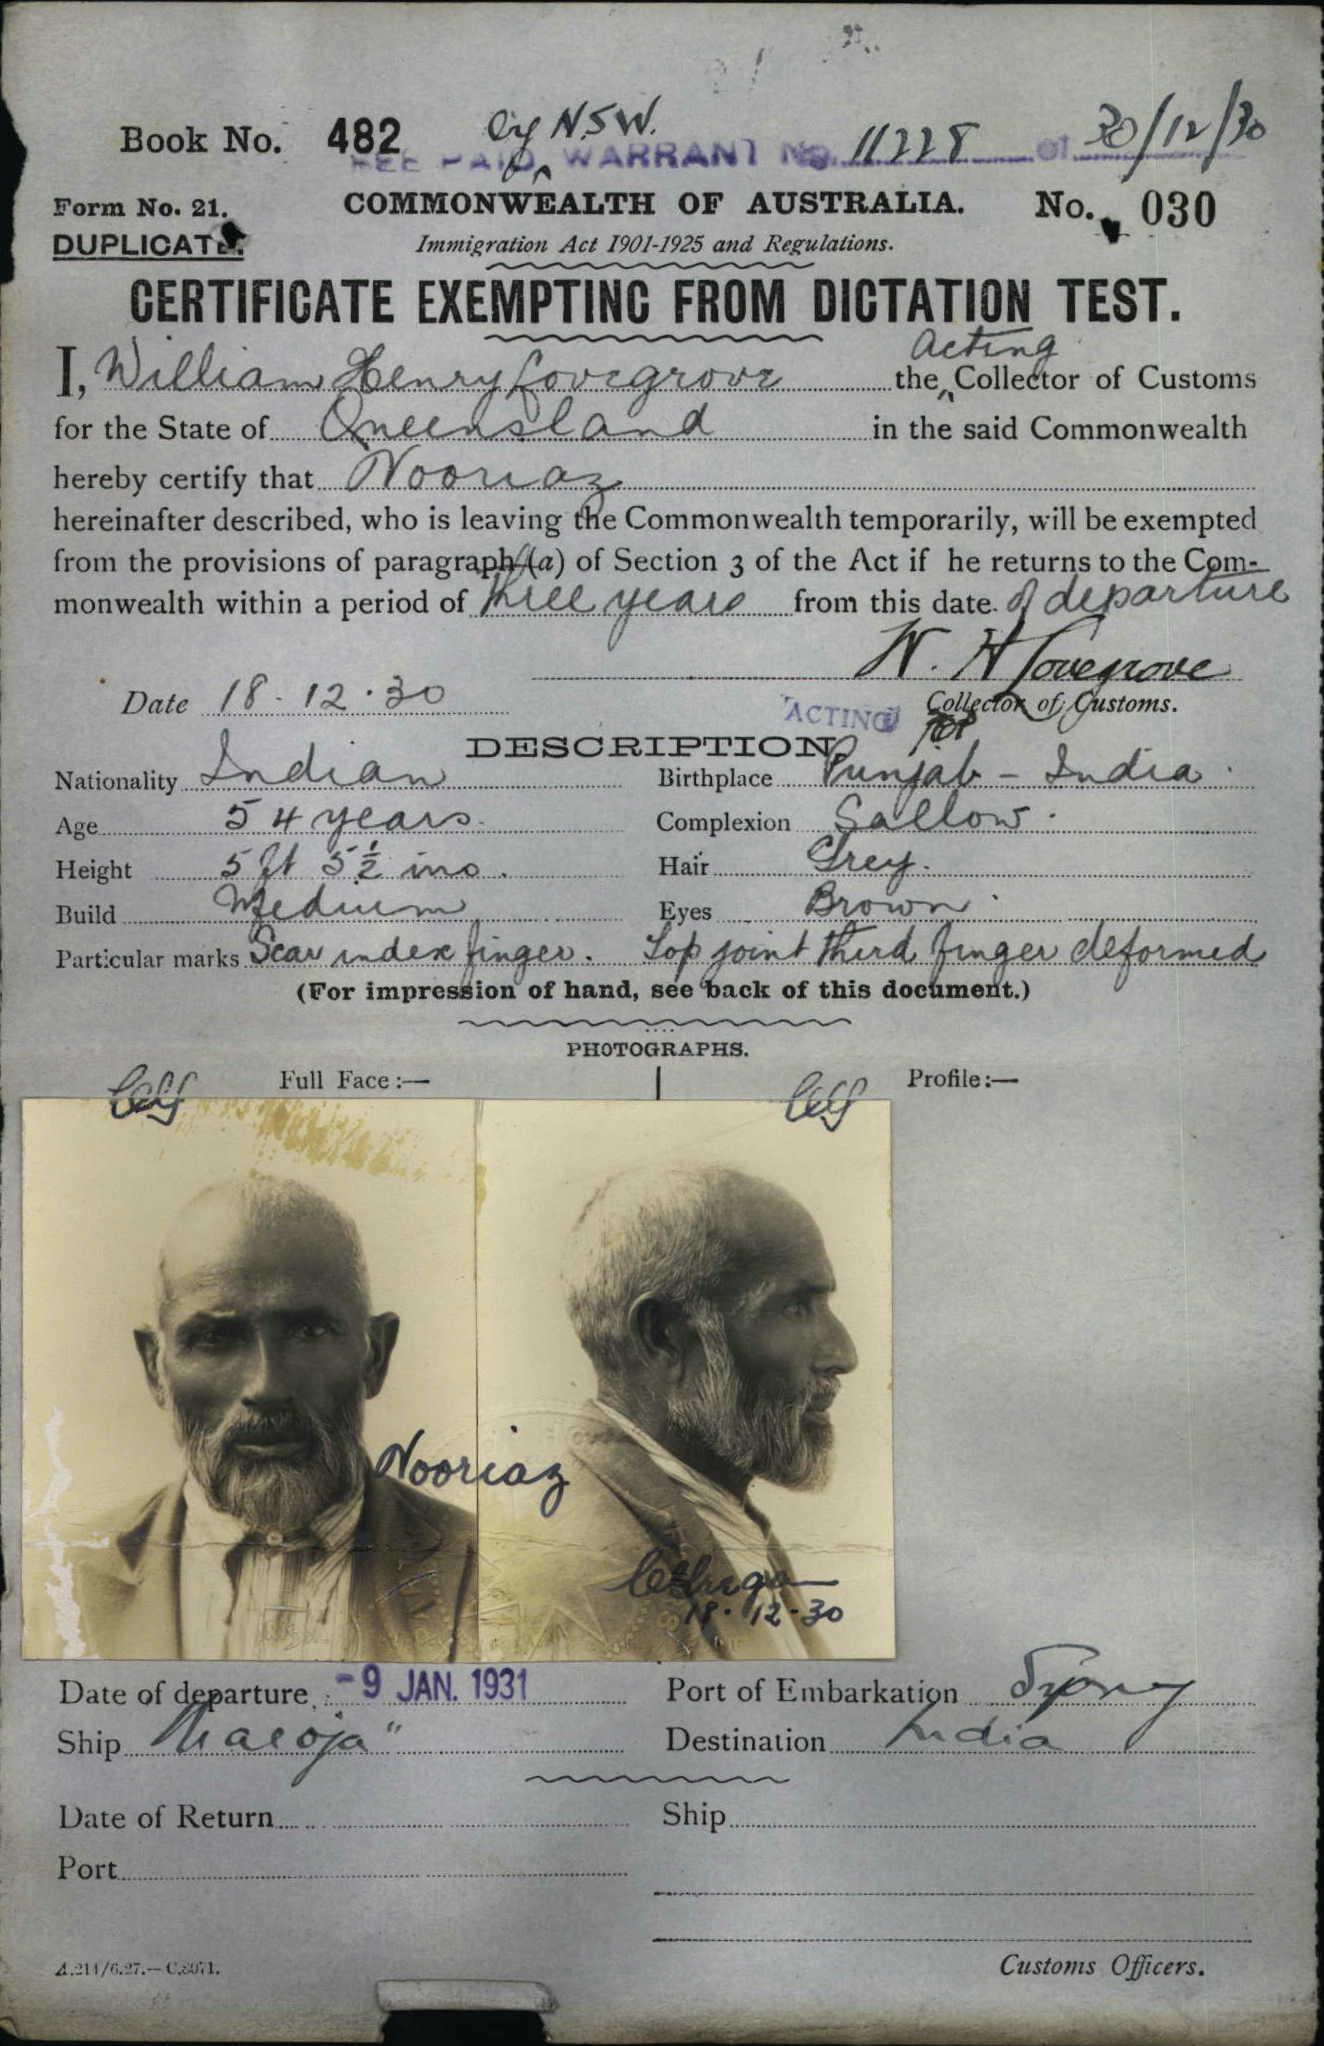 Book No. 482 by N.S.W.
FEE PAID WARRANT No. 11228 of 30/12/30
Form No. 21. COMMONWEALTH OF AUSTRALIA. No. 030
DUPLICATE.
Immigration Act 1901-1925 and Regulations.
CERTIFICATE EXEMPTING FROM DICTATION TEST.
Acting
I, William Henry Lovegrove the Collector of Customs
for the State of Queensland in the said Commonwealth
hereby certify that Nooriaz
hereinafter described, who is leaving the Commonwealth temporarily, will be exempted
from the provisions of paragraph (a) of Section 3 of the Act if he returns to the Com-
monwealth within a period of three years from this date of departure
W. H Lovegrove
Date 18.12.30 ACTING Collector of Customs.
DESCRIPTION.
Nationality Indian Birthplace Punjab - India.
Age 54 years. Complexion Sallow.
Height 5 ft 5½ ins. Hair Grey.
Build Medium Eyes Brown.
Particular marks Scar index finger. Top joint third finger deformed
(For impression of hand, see back of this document.)
PHOTOGRAPHS.
Full Face:— Profile:—
Nooriaz
18.12.30
Date of departure -9 JAN. 1931 Port of Embarkation Sydney
Ship "Maloja" Destination India
Date of Return Ship
Port
A.214/6.27.—C.8071. Customs Officers.